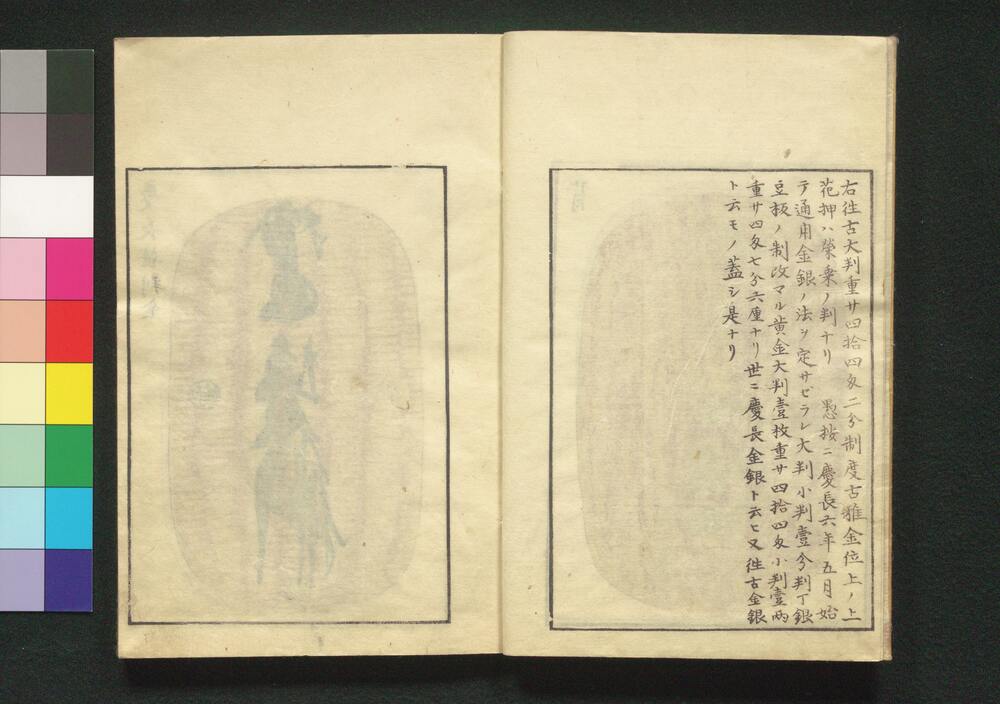 右徃古大判重サ四拾四匁二分制度古雅金位上ノ上
花押ハ榮乗ノ判ナリ　愚按ニ慶長六年五月始
テ通用金銀ノ法ヲ定サゼラレ大判小判壹分判丁銀
豆板ノ制改マル黄金大判壹枚重サ四拾四匁小判壹両
重サ四匁七分六厘ナリ世ニ慶長金銀ト云ヒ又徃古金銀
ト云モノ蓋シ是ナリ